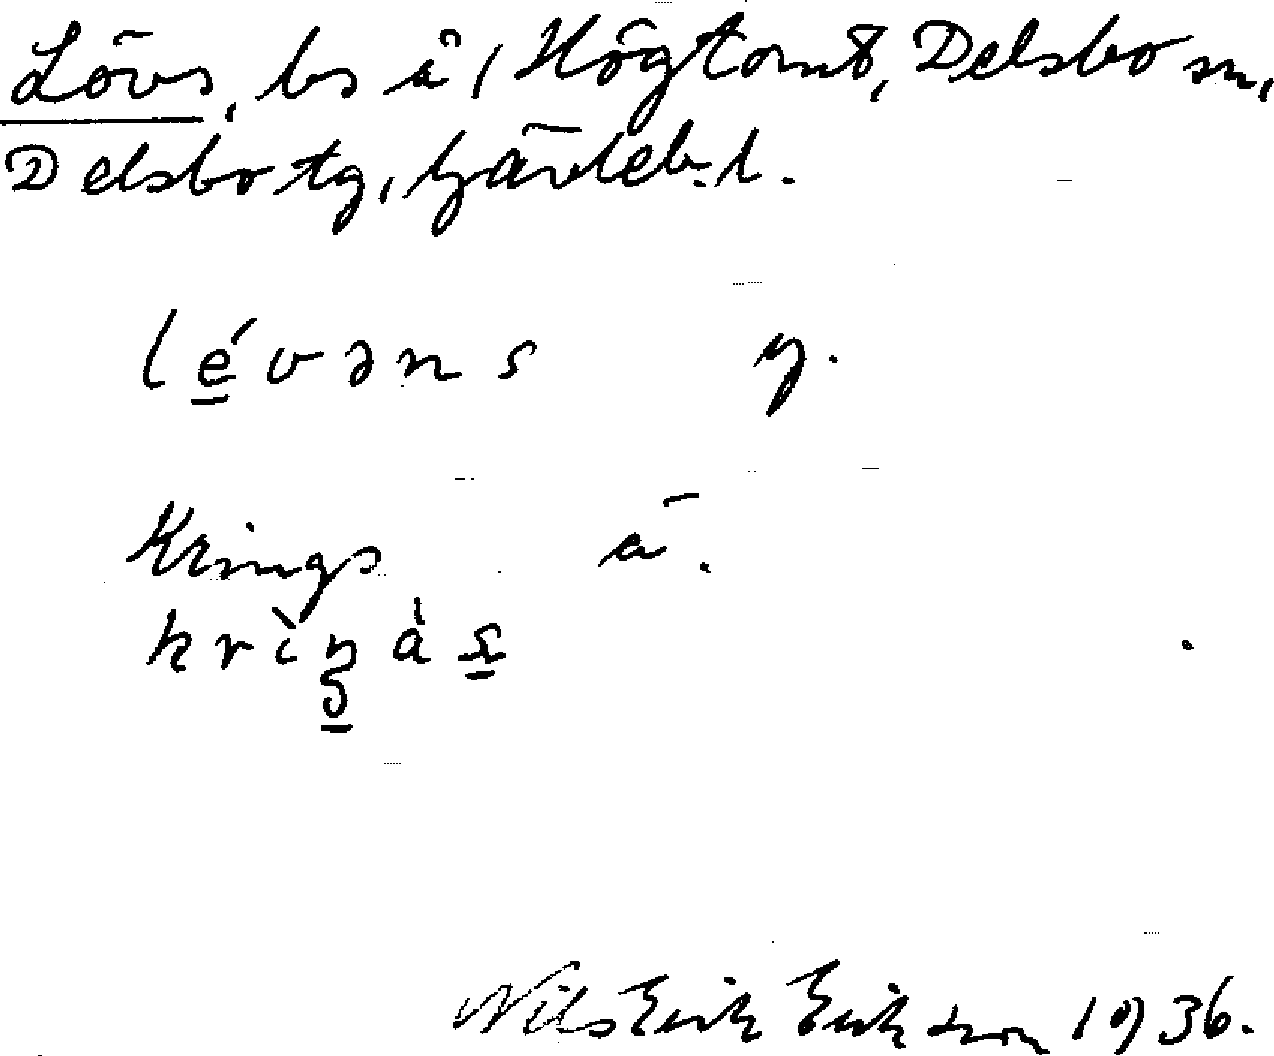 Lövs, bs å, Högtomt, Delsbo sn,
Delsbo tg, Gävleb. l.
lévəns y.
Krings ä.
krìŋàs
Nils Erik Erikson 1936.